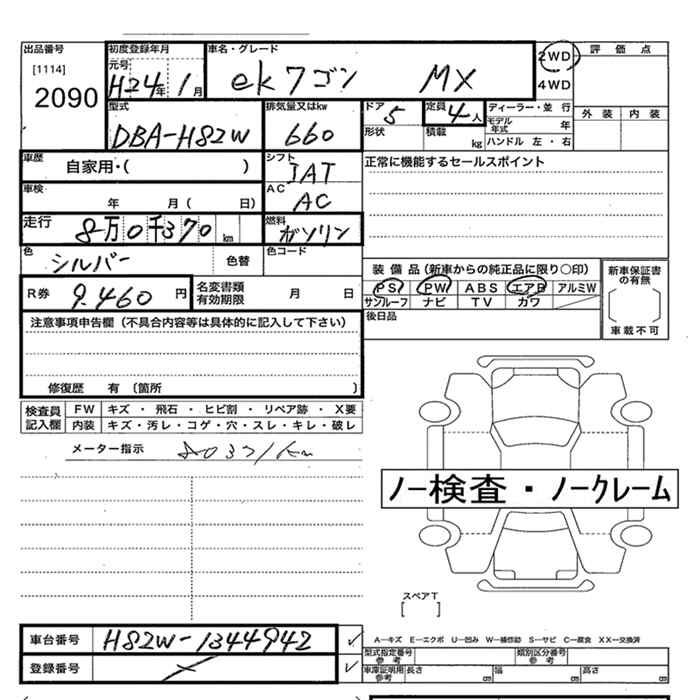 出品番号
[1114]
2090
初度登録年月
元号
H24年 1月
車名・グレード
ekワゴン MX
2WD
4WD
評価点
外装 内装
型式
DBA-H82W
排気量又はkw
660
ドア
5
形状
定員
4人
積載
kg
ディーラー・並行
モデル年式 年
ハンドル 左・右
車歴
自家用・( )
シフト
IAT
車検
年 月( 日)
AC
AC
走行
8万0千370 km
燃料
ガソリン
正常に機能するセールスポイント
色
シルバー
色替
色コード
R券 9.460 円
名変書類有効期限 月 日
装備品(新車からの純正品に限り○印)
PS PW ABS エアB アルミW
サンルーフ ナビ TV カワ
後日品
新車保証書の有無
車載不可
注意事項申告欄(不具合内容等は具体的に記入して下さい)
修復歴 有 (箇所 )
検査員記入欄
FW キズ・飛石・ヒビ割・リペア跡・X要
内装 キズ・汚レ・コゲ・穴・スレ・キレ・破レ
メーター指示
ノー検査・ノークレーム
スペアT
[ ]
車台番号 H82W-1344942 ✓
登録番号 ✓
A…キズ E…エクボ U…凹み W…補修跡 S…サビ C…腐食 XX…交換済
型式指定番号 参考
類別区分番号 参考
車庫証明用 参考
長さ cm 幅 cm 高さ cm